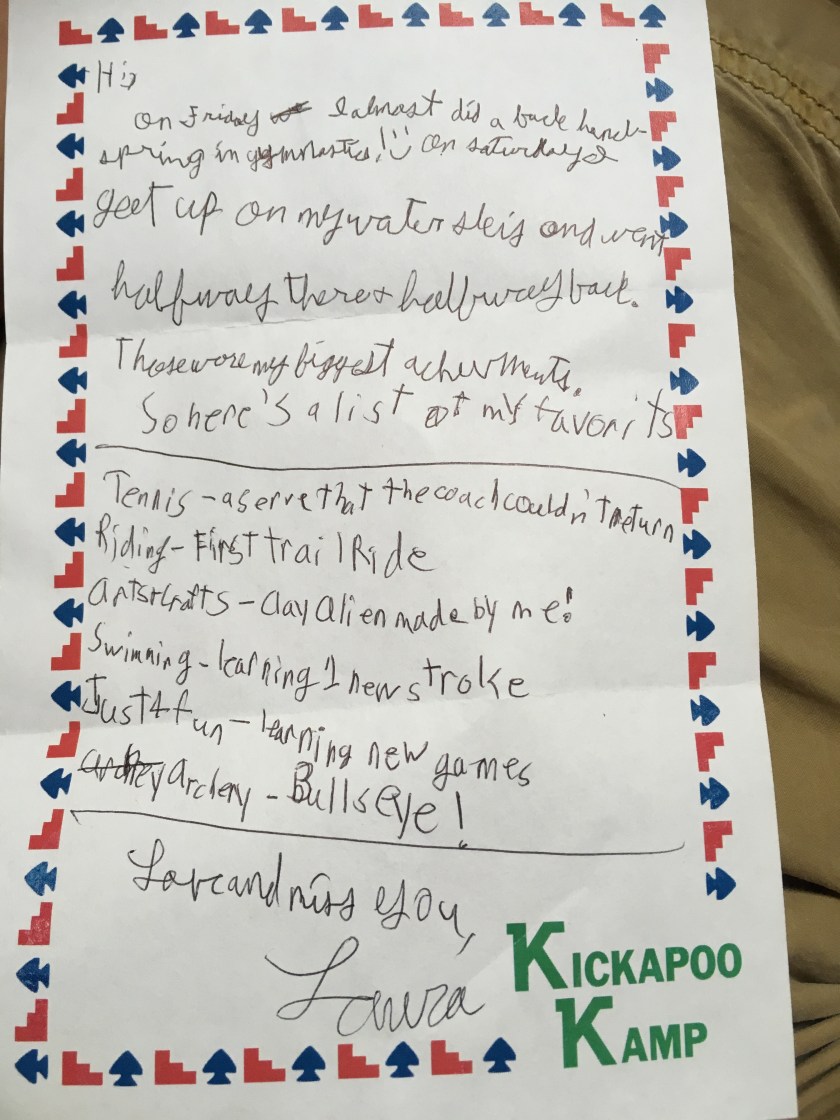 Hi,
On Friday I almost did a back hand-
spring in gymnastics! :) On saturday I
geet up on my water skis and went
halfway there + halfway back.
Those were my biggest acheivments.
So here's a list of my favorits
Tennis - a serve that the coach couldn't return
Riding - First trail Ride
arts+crafts - Clay alien made by me!
Swimming - learning 1 new stroke
Just 4 fun - learning new games
archery - BullsEye!
Love and miss you,
Laura
KICKAPOO
KAMP